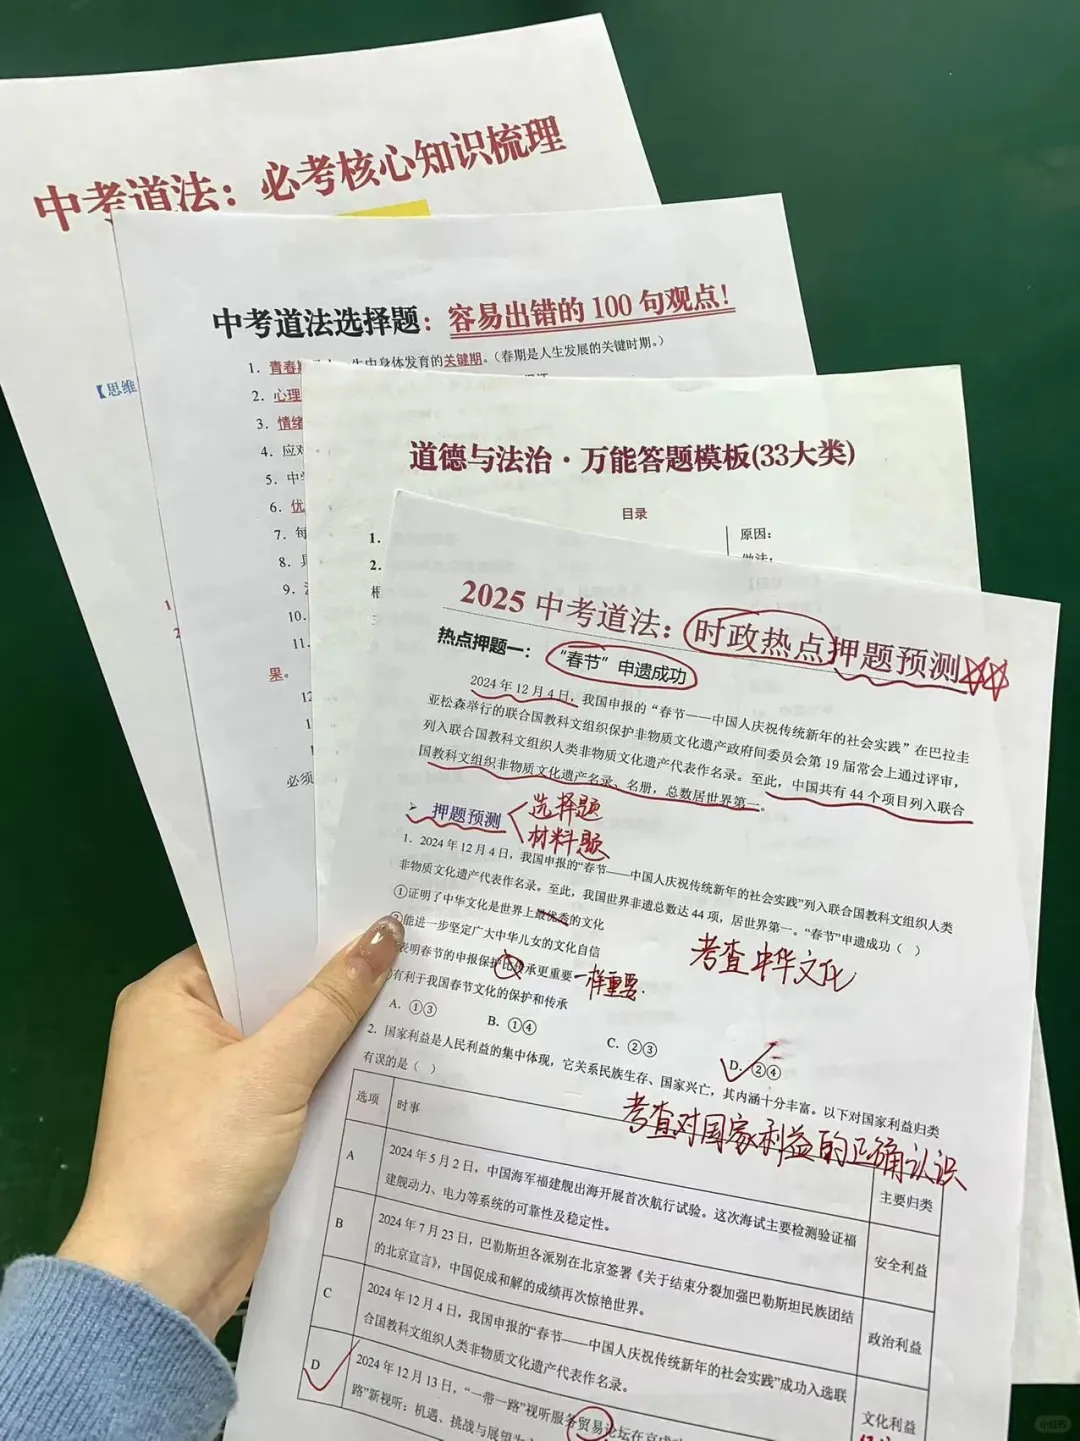 中考道法：必考核心知识梳理
【思维
中考道法选择题：容易出错的 100 句观点！
1. 青春期 生中身体发育的关键期。（春期是人生发展的关键时期。）
2. 心理
3. 情绪
4. 应对
5. 中学
6. 优
7. 每
8. 具
9.
10.
11.
果。
必须
道德与法治·万能答题模板(33大类)
目录
1.
2.
原因：
做法：
2025 中考道法：时政热点押题预测
热点押题一：“春节”申遗成功
2024 年 12 月 4 日，我国申报的“春节——中国人庆祝传统新年的社会实践”在巴拉圭
亚松森举行的联合国教科文组织保护非物质文化遗产政府间委员会第 19 届常会上通过评审，
列入联合国教科文组织人类非物质文化遗产代表作名录。至此，中国共有 44 个项目列入联合
国教科文组织非物质文化遗产名录、名册，总数居世界第一。
押题预测
选择题
材料题
1．2024 年 12 月 4 日，我国申报的“春节——中国人庆祝传统新年的社会实践”列入联合国教科文组织人类
非物质文化遗产代表作名录。至此，我国世界非遗总数达 44 项，居世界第一。“春节”申遗成功（ ）
①证明了中华文化是世界上最优秀的文化
②能进一步坚定广大中华儿女的文化自信
表明春节的申报保护比传承更重要 一样重要.
有利于我国春节文化的保护和传承
考查中华文化
A．①③
B．①④
C．②③
D．②④
2．国家利益是人民利益的集中体现，它关系民族生存、国家兴亡，其内涵十分丰富。以下对国家利益归类
有误的是（ ）
考查对国家利益的正确认识
选项 时事 主要归类
A 2024 年 5 月 2 日，中国海军福建舰出海开展首次航行试验。这次海试主要检测验证福
建舰动力、电力等系统的可靠性及稳定性。 安全利益
B 2024 年 7 月 23 日，巴勒斯坦各派别在北京签署《关于结束分裂加强巴勒斯坦民族团结
的北京宣言》，中国促成和解的成绩再次惊艳世界。 政治利益
C 2024 年 12 月 4 日，我国申报的“春节——中国人庆祝传统新年的社会实践”成功入选联
合国教科文组织人类非物质文化遗产代表作名录。 文化利益
D 2024 年 12 月 13 日，“一带一路”视听服务贸易论坛在京成
路”新视听：机遇、挑战与展望为
小红书